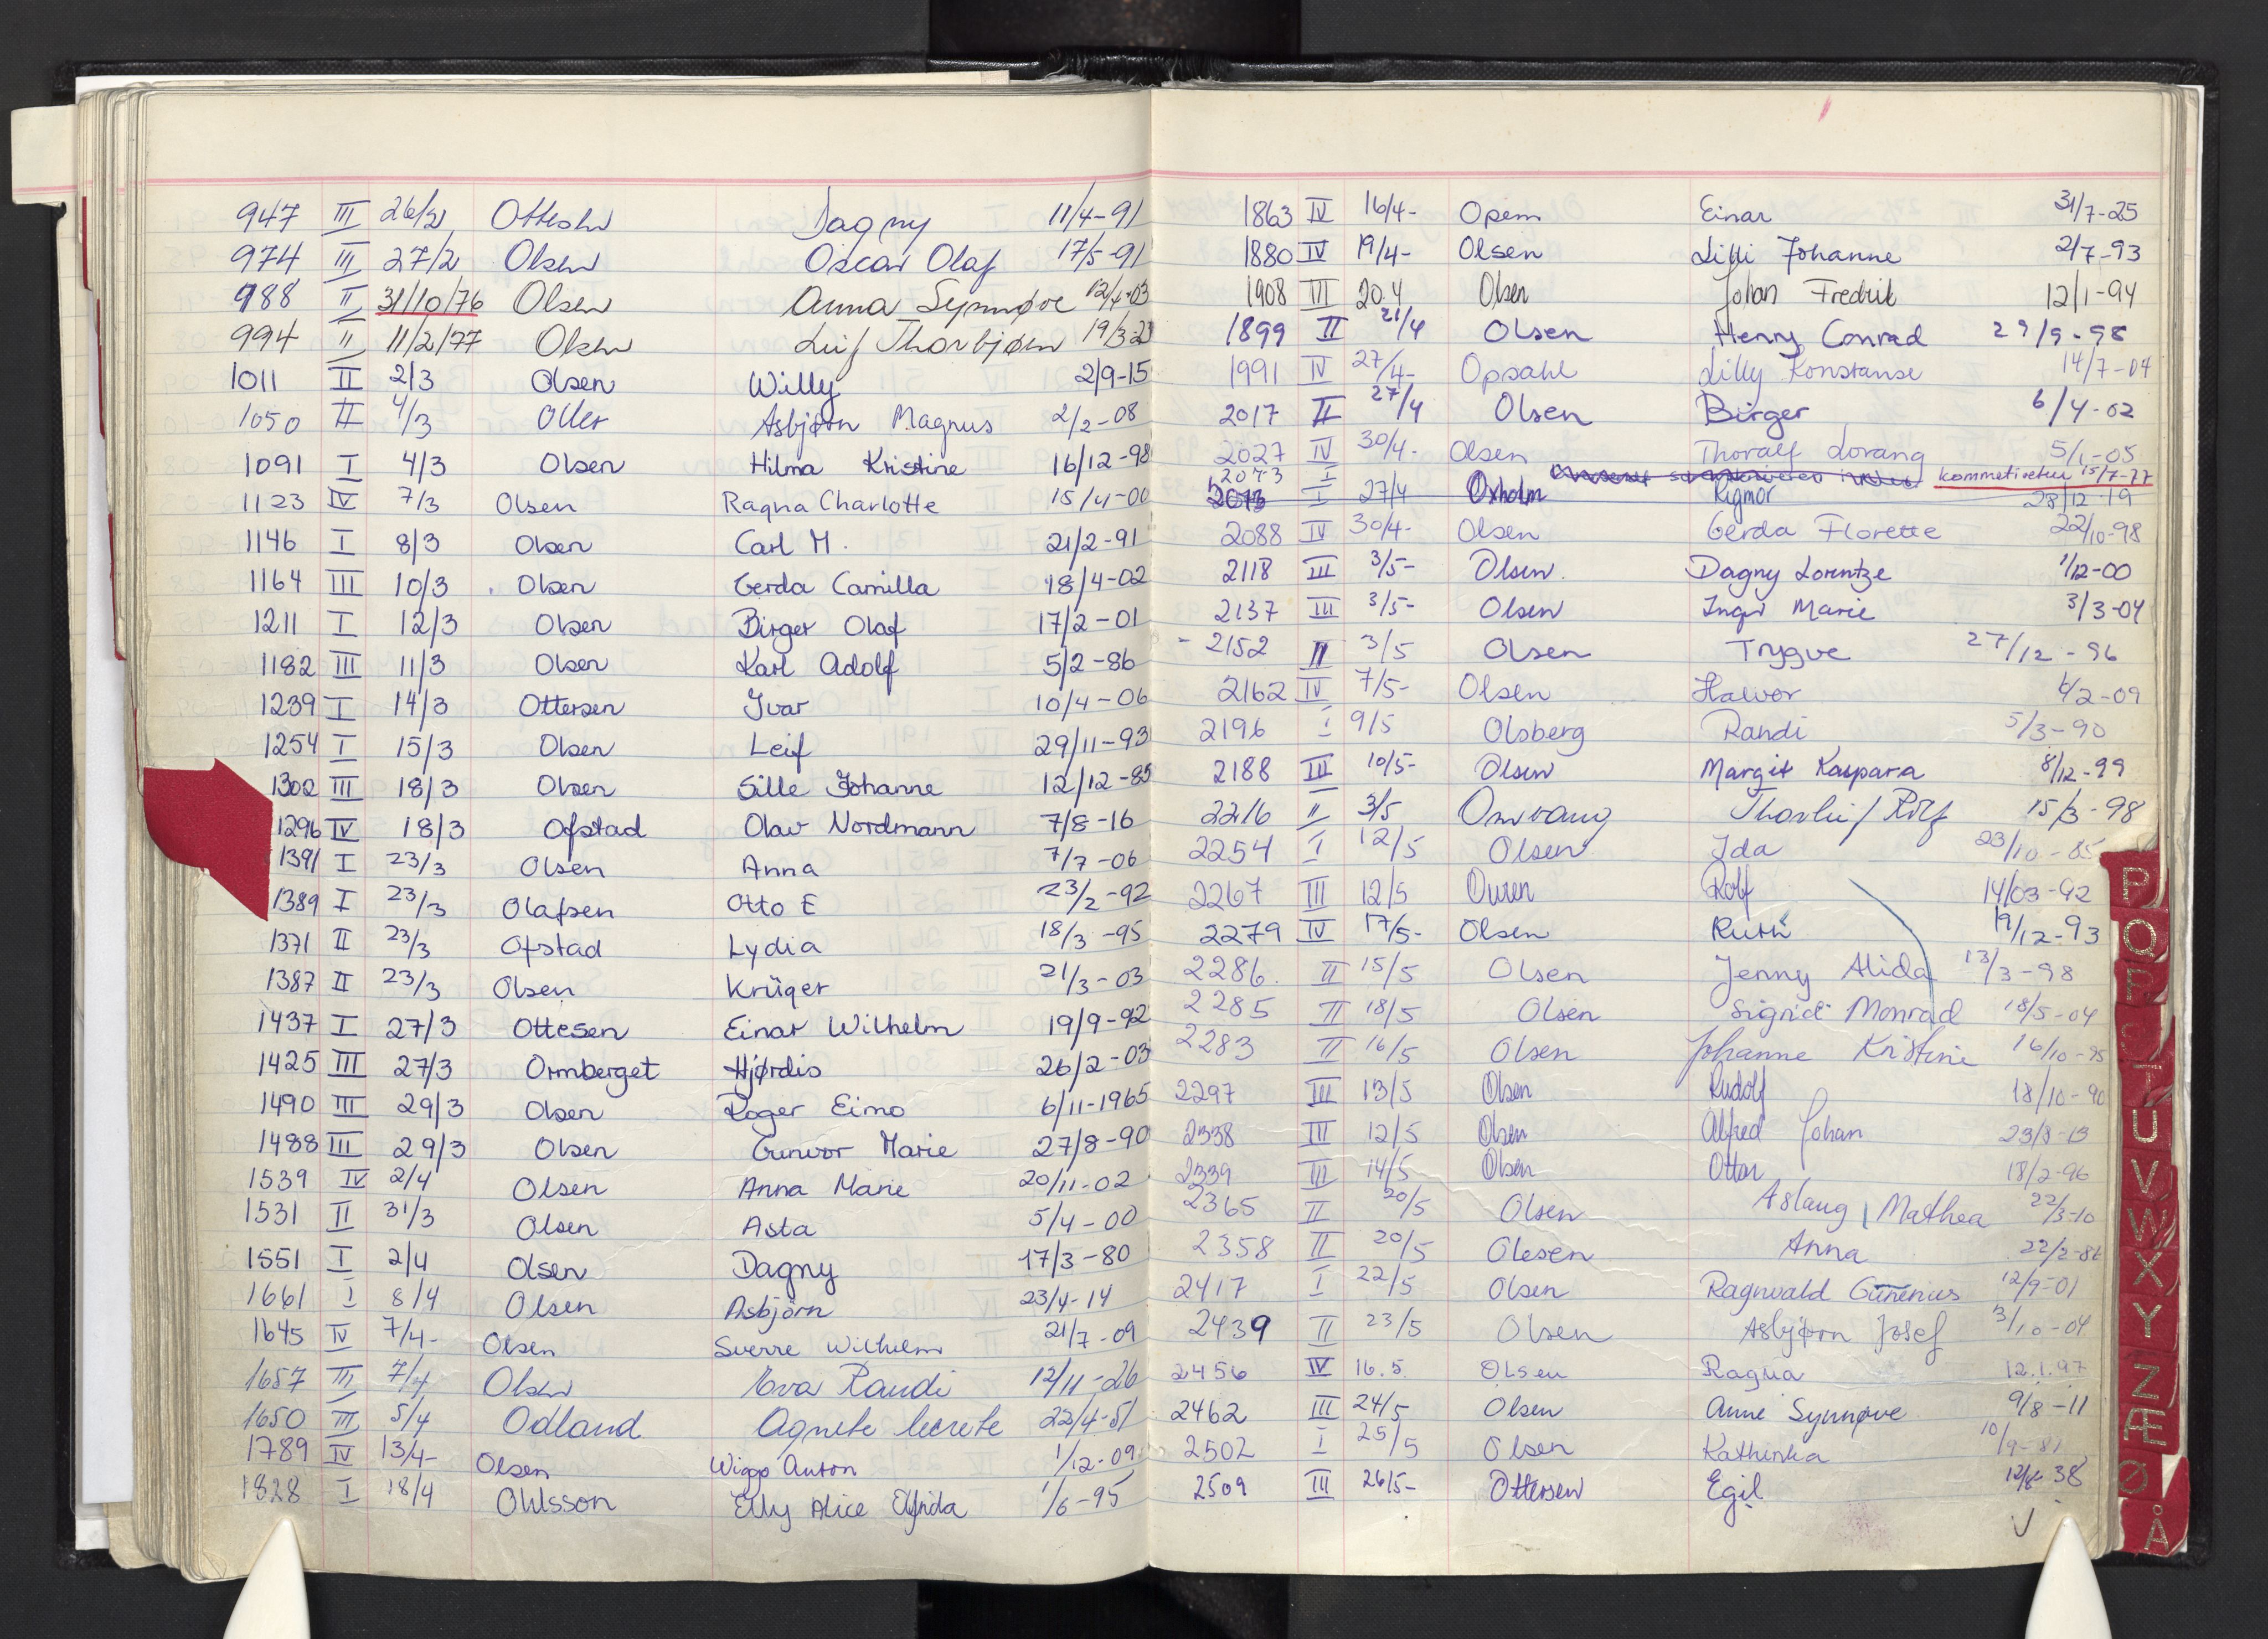 947 III 26/2 Ottesen Dagny 11/4-91
974 III 27/2 Olsen Oscar Olaf 17/5-91
988 II 31/10/76 Olsen Anna Synnøve 12/4-03
994 II 11/2/77 Olsen Leif Thorbjørn 19/3-23
1011 II 2/3 Olsen Willy 2/9-15
1050 II 4/3 Oller Asbjørn Magnus 2/2-08
1091 I 4/3 Olsen Hilma Kristine 16/12-98
1123 IV 7/3 Olsen Ragna Charlotte 15/4-00
1146 I 8/3 Olsen Carl M. 21/2-91
1164 III 10/3 Olsen Gerda Camilla 18/4-02
1211 I 12/3 Olsen Birger Olaf 17/2-01
1182 III 11/3 Olsen Karl Adolf 5/2-86
1239 I 14/3 Ottersen Ivar 10/4-06
1254 I 15/3 Olsen Leif 29/11-93
1302 III 18/3 Olsen Sille Johanne 12/12-85
1296 IV 18/3 Ofstad Olav Nordmann 7/8-16
1391 I 23/3 Olsen Anna 7/7-06
1389 I 23/3 Olafsen Otto E 23/2-92
1371 II 23/3 Ofstad Lydia 18/3-95
1387 II 23/3 Olsen Krüger 21/3-03
1437 I 27/3 Ottesen Einar Wilhelm 19/9-92
1425 III 27/3 Ormberget Hjørdis 26/2-03
1490 III 29/3 Olsen Roger Eimo 6/11-1965
1488 III 29/3 Olsen Gunvor Marie 27/8-90
1539 IV 2/4 Olsen Anna Marie 20/11-02
1531 II 31/3 Olsen Asta 5/4-00
1551 I 2/4 Olsen Dagny 17/3-80
1661 I 8/4 Olsen Asbjörn 23/4-14
1645 IV 7/4- Olsen Sverre Wilhelm 21/7-09
1657 III 7/4 Olsen Eva Randi 12/11-26
1650 III 5/4 Odland Agnete 22/4-51
1789 IV 13/4- Olsen Wiggo Anton 1/12-09
1828 I 18/4 Ohlsson Elly Alice Elfrida 1/6-95
1863 IV 16/4- Opem Einar 31/7-25
1880 IV 19/4- Olsen Lilli Johanne 2/7-93
1908 III 20.4 Olsen Johan Fredrik 12/1-94
1899 II 21/4 Olsen Henry Conrad 29/9-98
1991 IV 27/4- Opsahl Lilly Konstanse 14/7-04
2017 II 27/4 Olsen Birger 6/4-02
2027 IV 30/4- Olsen Thoralf Lorang 5/1-05
2073 I kommet retur 15/7-77
2073 I 27/4 Oxholm Rigmor 28/12-19
2088 IV 30/4- Olsen Gerda Florette 22/10-98
2118 III 3/5- Olsen Dagny Lorentze 1/12-00
2137 III 3/5- Olsen Inger Marie 3/3-04
- 2152 II 3/5 Olsen Trygve 27/12-96
2162 IV 7/5- Olsen Halvor 6/2-09
2196 I 9/5 Olsberg Randi 5/3-90
2188 III 10/5- Olsen Margit Kaspara 8/12-99
2216 II 3/5 Omvang Thorleif Rolf 15/3-98
2254 I 12/5 Olsen Ida 23/10-85
2267 III 12/5 Ouren Rolf 14/03-92
2279 IV 17/5- Olsen Ruth 19/12-93
2286. II 15/5 Olsen Jenny Alida 13/3-98
2285 II 18/5 Olsen Sigrid Monrad 18/5-04
2283 II 16/5 Olsen Johanne Kristine 16/10-95
2297 III 13/5 Olsen Rudolf 18/10-90
2338 III 12/5 Olsen Alfred Johan 23/8-13
2339 III 14/5 Olsen Ottar 18/2-96
2365 II 20/5 Olsen Aslaug Mathea 22/3-10
2358 II 20/5 Olesen Anna 22/2-86
2417 I 22/5 Olsen Ragnvald Gunerius 12/9-01
2439 II 23/5 Olsen Asbjørn Josef 3/10-04
2456 IV 16.5 Olsen Ragna 12.1.97
2462 III 24/5 Olsen Anne Synnøve 9/8-11
2502 I 25/5 Olsen Kathinka 10/9-81
2509 III 26/5- Ottersen Egil 12/8-38
P
Q
R
T
U
V
W
X
Y
Z
Æ
Ø
Å